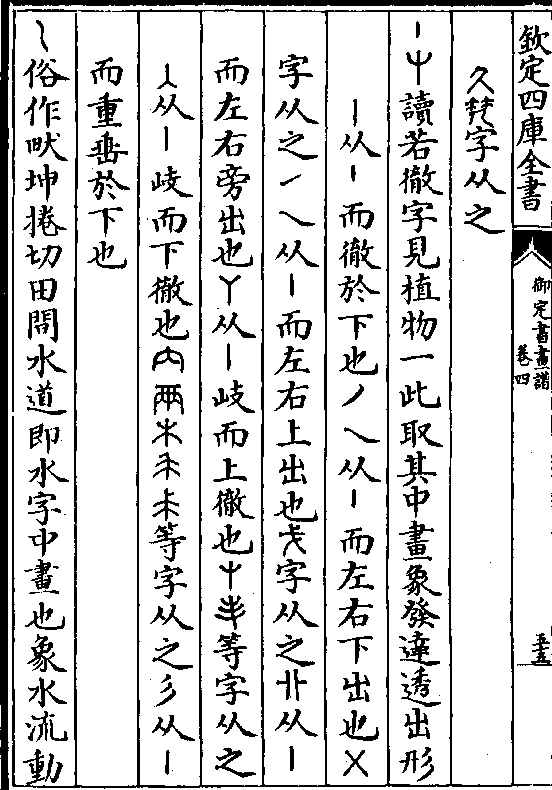 欽定四庫全書
御定書畫譜
卷四
五五
久字从之
丨屮讀若徹字見植物一此取其中畫象發達透出形
丨从丨而徹於下也丿乀从丨而左右下出也㐅
字从之丿乀从丨而左右上出也字从之卝从丨
而左右旁出也丫从丨歧而上徹也等字从之
人从丨歧而下徹也內兩木禾未等字从之彡从丨
而重垂於下也
俗作畎坤捲切田間水道即水字中畫也象水流動